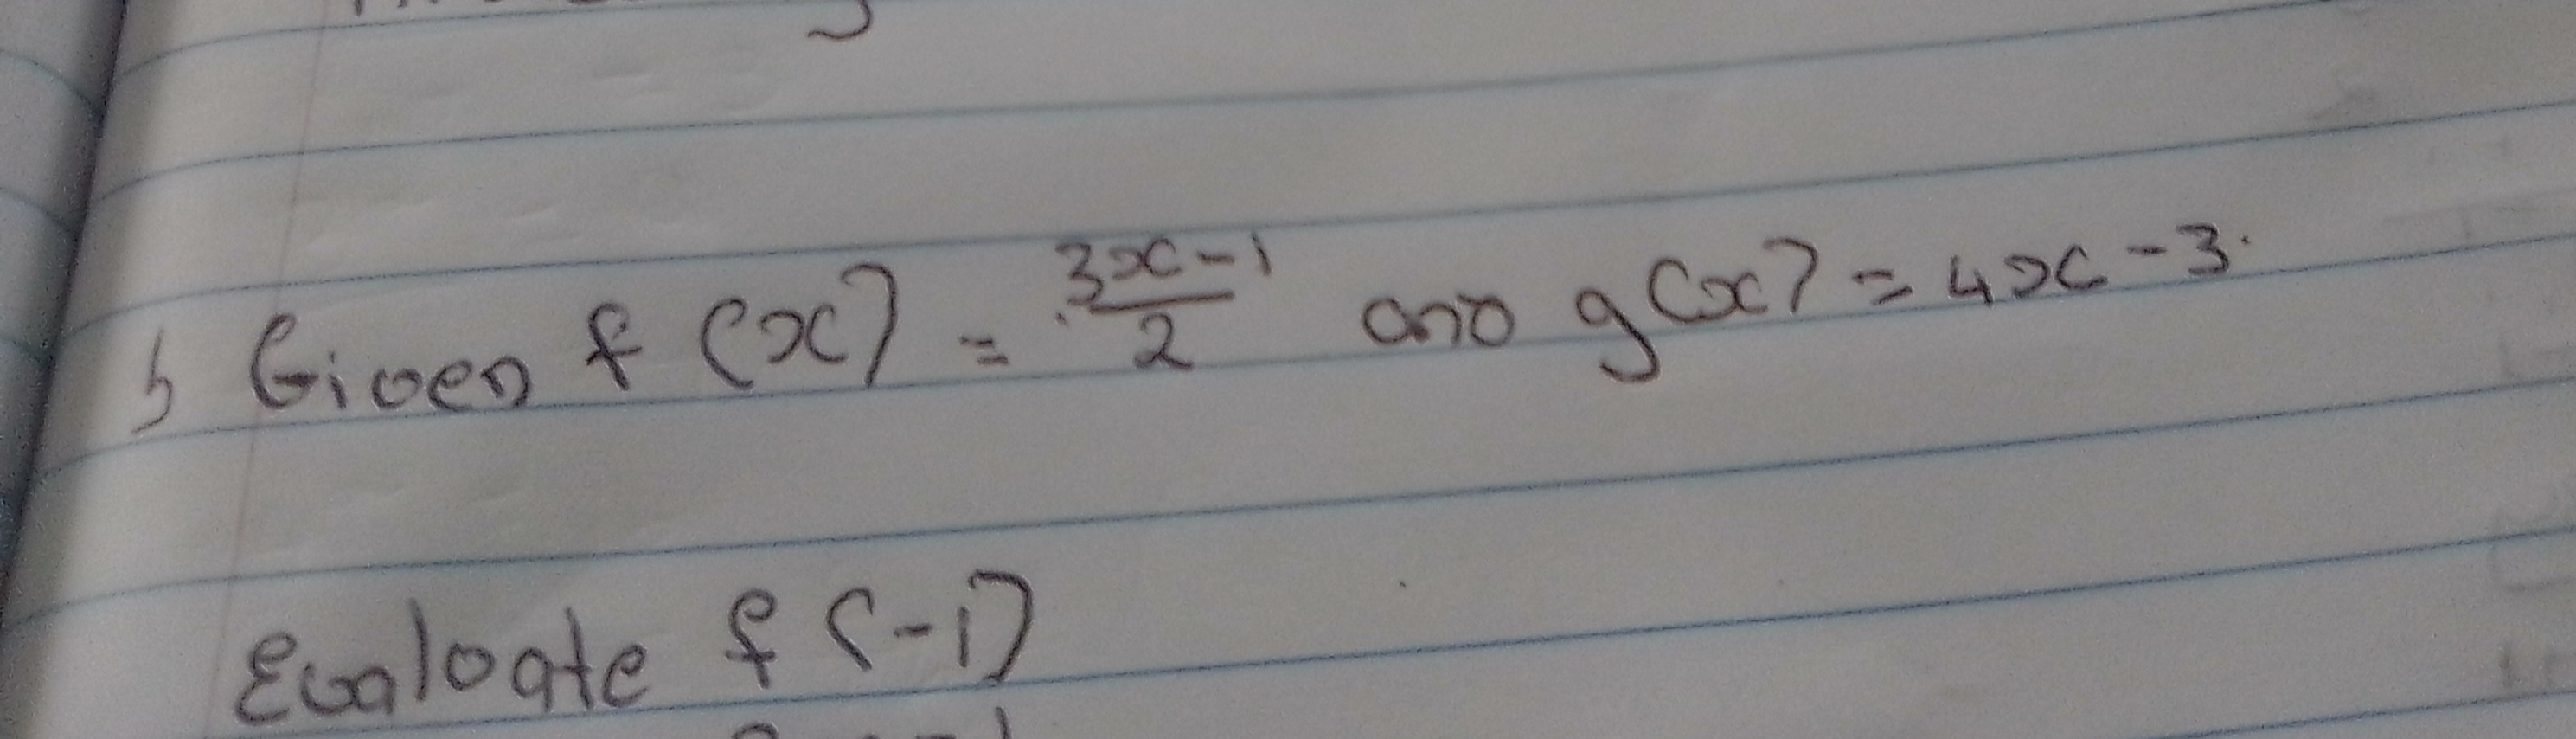 b Given f (x) = 3x-1/2 and g(x) = 4x-3.
Evaluate f(-1)